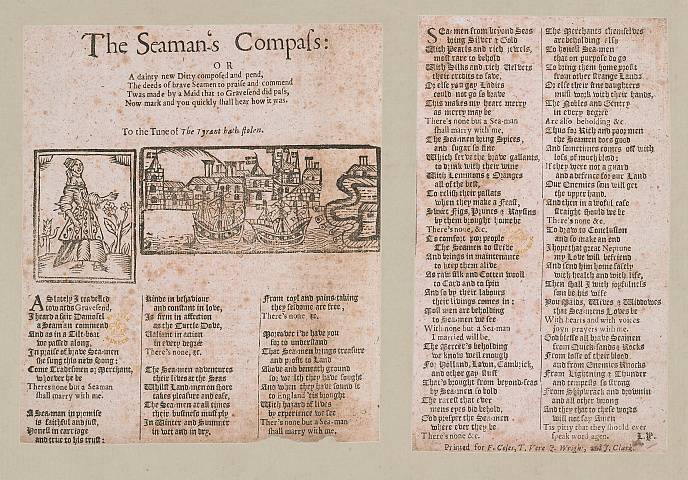 The Seaman's Compass:
OR
A dainty new Ditty composed and pend,
The deeds of brave Seamen to praise and commend
Twas made by a Maid that to Gravesend did pass,
Now mark and you quickly shall hear how it was.
To the Tune of The Tyrant hath stolen.
AS lately I travelled
towards Gravesend,
I heard a fair Damosel
a Seaman commend
And as in a Tilt-boat
we passed along,
In praise of brave Sea-men
she sung this new Song:
Come Tradesmen or Merchant,
whoever he be
Theres none but a Seaman
shall marry with me.
A Sea-man in promise
is faithful and just,
Honest in carriage
and true to his trust:
Kinde in behaviour
and constant in love,
Is firm in affection
as the Turtle Dove,
Valiant in action
in every degree
There's none, &c.
The Sea-men adventures
their lives at the Seas
Whilst Land-men on shore
takes pleasure and ease,
The Sea-men at all times
their business must ply
In Winter and Summer
in wet and in dry.
From toyl and pains-taking
they seldome are free,
There's none &c.
Moreover i'de have you
for to understand
That Sea-men brings treasure
and profit to Land
Above and beneath ground
for wealth they have sought
And when they have found it
to England 'tis brought
With hazard of lives
by experience we see
Ther's none but a Sea-man
shall marry with me.
SEa-men from beyond Seas
bring Silver & Gold
With Pearls and rich jewels,
most rare to behold
With Silks and rich Velvets
their credits to save,
Or else you gay Ladies
could not go so brave
This makes my heart merry
as merry may be
There's none but a Sea-man
shall marry with me.
The Sea-men bring Spices,
and sugar so fine
Which serve the brave gallants,
to drink with their wine
With Lemmons & Oranges
all of the best,
To relish their pallats
when they make a Feast,
Sweet Figs, Prunes & Raysins
by them brought home be
There's none, &c.
To comfort poor people
The Seamen do strive
And brings in maintenance
to keep them alive
As raw silk and Cotten wooll
to Card and to spin
And so by their labours
their livings comes in:
Most men are beholding
to Sea-men we see
With none but a Sea-man
I married will be.
The Mercer's beholding
we know well enough
For Holland, Lawn, Cambrick,
and other gay stuff
That's brought from beyond-seas
by Sea-men so bold
The rarest that ever
mens eyes did behold,
God prosper the Sea-men
where ever they be
There's none &c.
The Merchants themselves
are beholding also
To honest Sea-men
that on purpose do go
To bring them home profit
from other strange Lands
Or else their fine daughters
must work with their hands,
The Nobles and Gentry
in every degree
Are also beholding &c
Thus for Rich and poor men
the Seamen does good
And sometimes comes off with
loss of much blood:
If they were not a guard
and a defence for our Land
Our Enemies soon will get
the upper hand,
And then in a woful case
straight should we be
There's none &c.
To draw to Conclusion
and so make an end
I hope that great Neptune
my Love will befriend
And send him home safely
with health and with life,
Then shall I with joyfulness
soon be his wife
You Maids, Wives & Widdowes
that Sea-mens Loves be
With hearts and with voices
joyn prayers with me.
God bless all brave Seamen
from Quick-sands & Rocks
From loss of their blood
and from Enemies Knocks
From Lightning & Thunder
and tempests so strong
From Shipwrack and drownin
and all other wrong
And they that to these words
will not say Amen
'Tis pitty that they should ever
speak word agen.
L.P.
Printed for F. Coles, T. Vere J. Wright, and J. Clark.